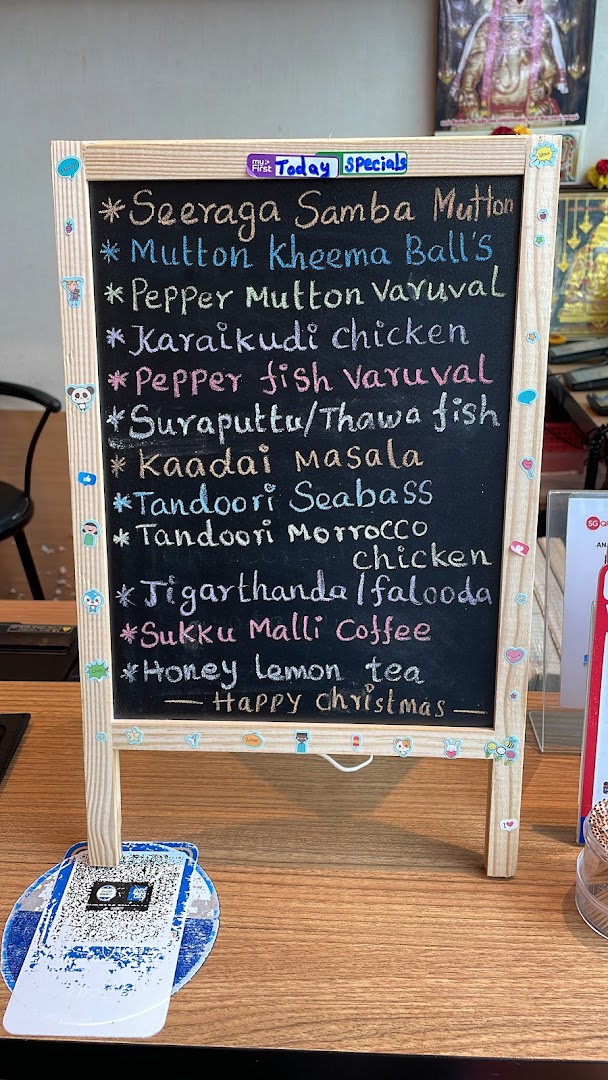 my> First Today specials
*Seeraga Samba Mutton
* Mutton Kheema Ball's
*Pepper Mutton Varuval
*Karaikudi chicken
*Pepper fish varuval
*Suraputtu/Thawa fish
*Kaadai Masala
*Tandoori Seabass
*Tandoori Morrocco
chicken
*Jigarthanda/falooda
*Sukku Malli Coffee
*Honey lemon tea
— Happy christmas —
SG